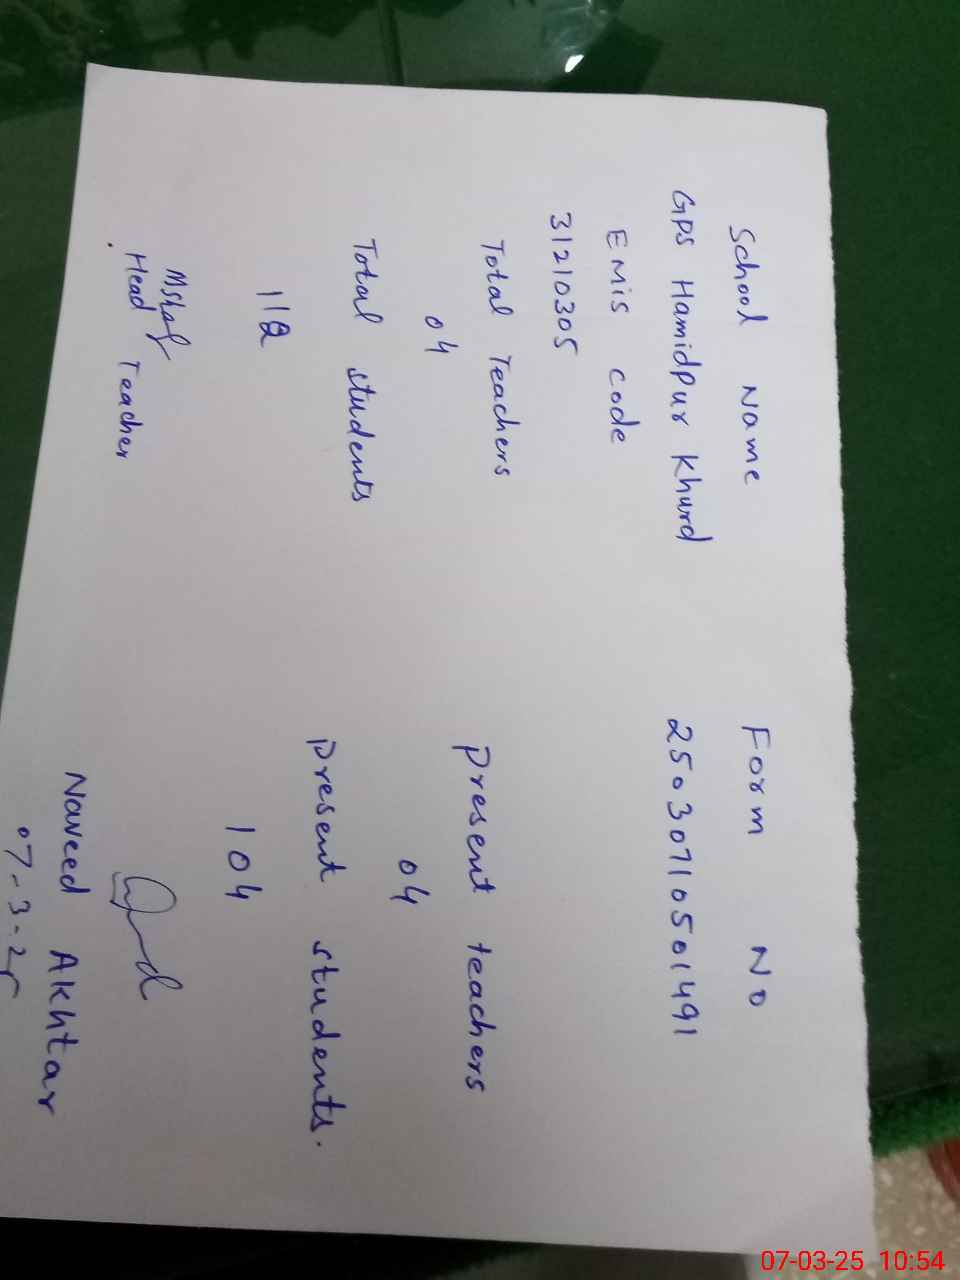 School Name
GPS Hamidpur Khurd
EMis code
31210305
Total Teachers
04
Total students
112
Head Teacher
Form No
25030710501491
Present teachers
04
Present students.
104
Naveed Akhtar
07-3-25
07-03-25 10:54